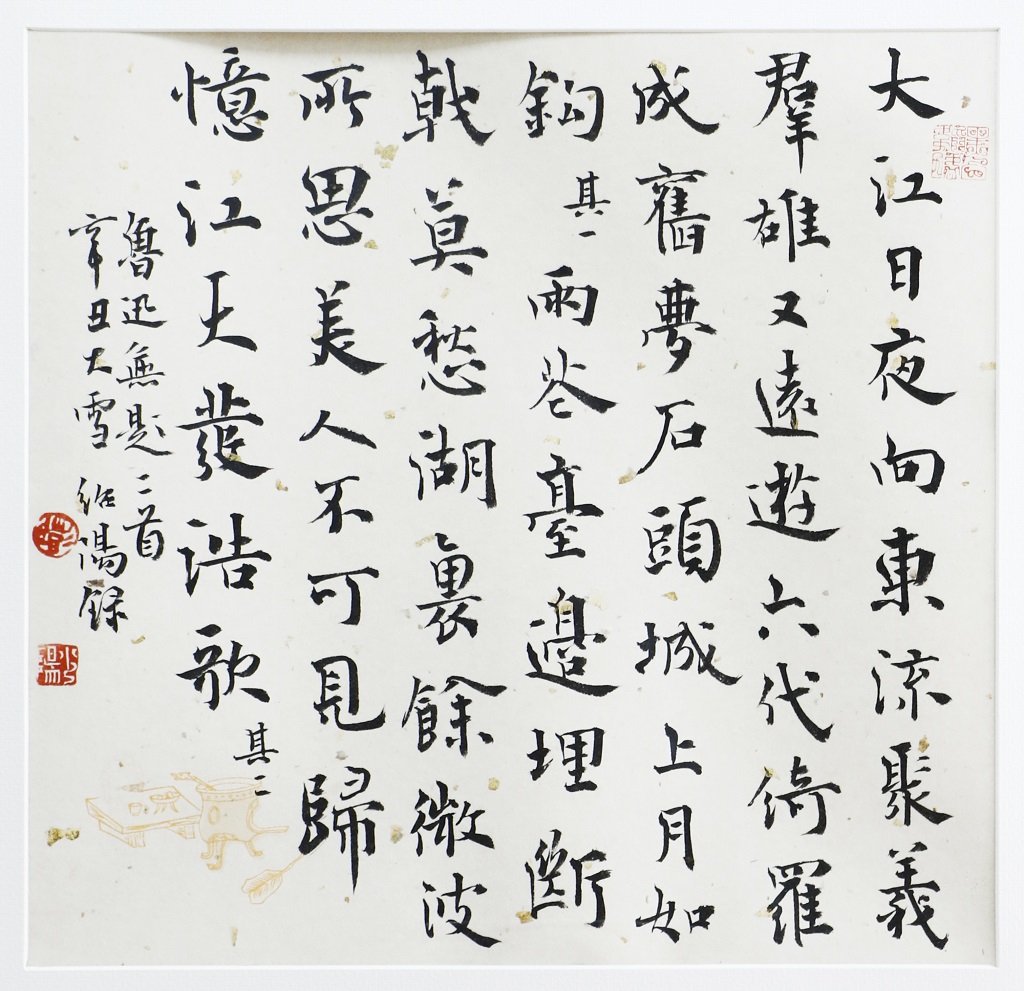 大江日夜向東流聚義
羣雄又遠遊六代綺羅
成舊夢石頭城上月如
鈎 其一 雨花臺邊埋斷
戟莫愁湖裏餘微波
所思美人不可見歸
憶江天發浩歌 其二
魯迅無題二首
辛丑大雪 紹 錄